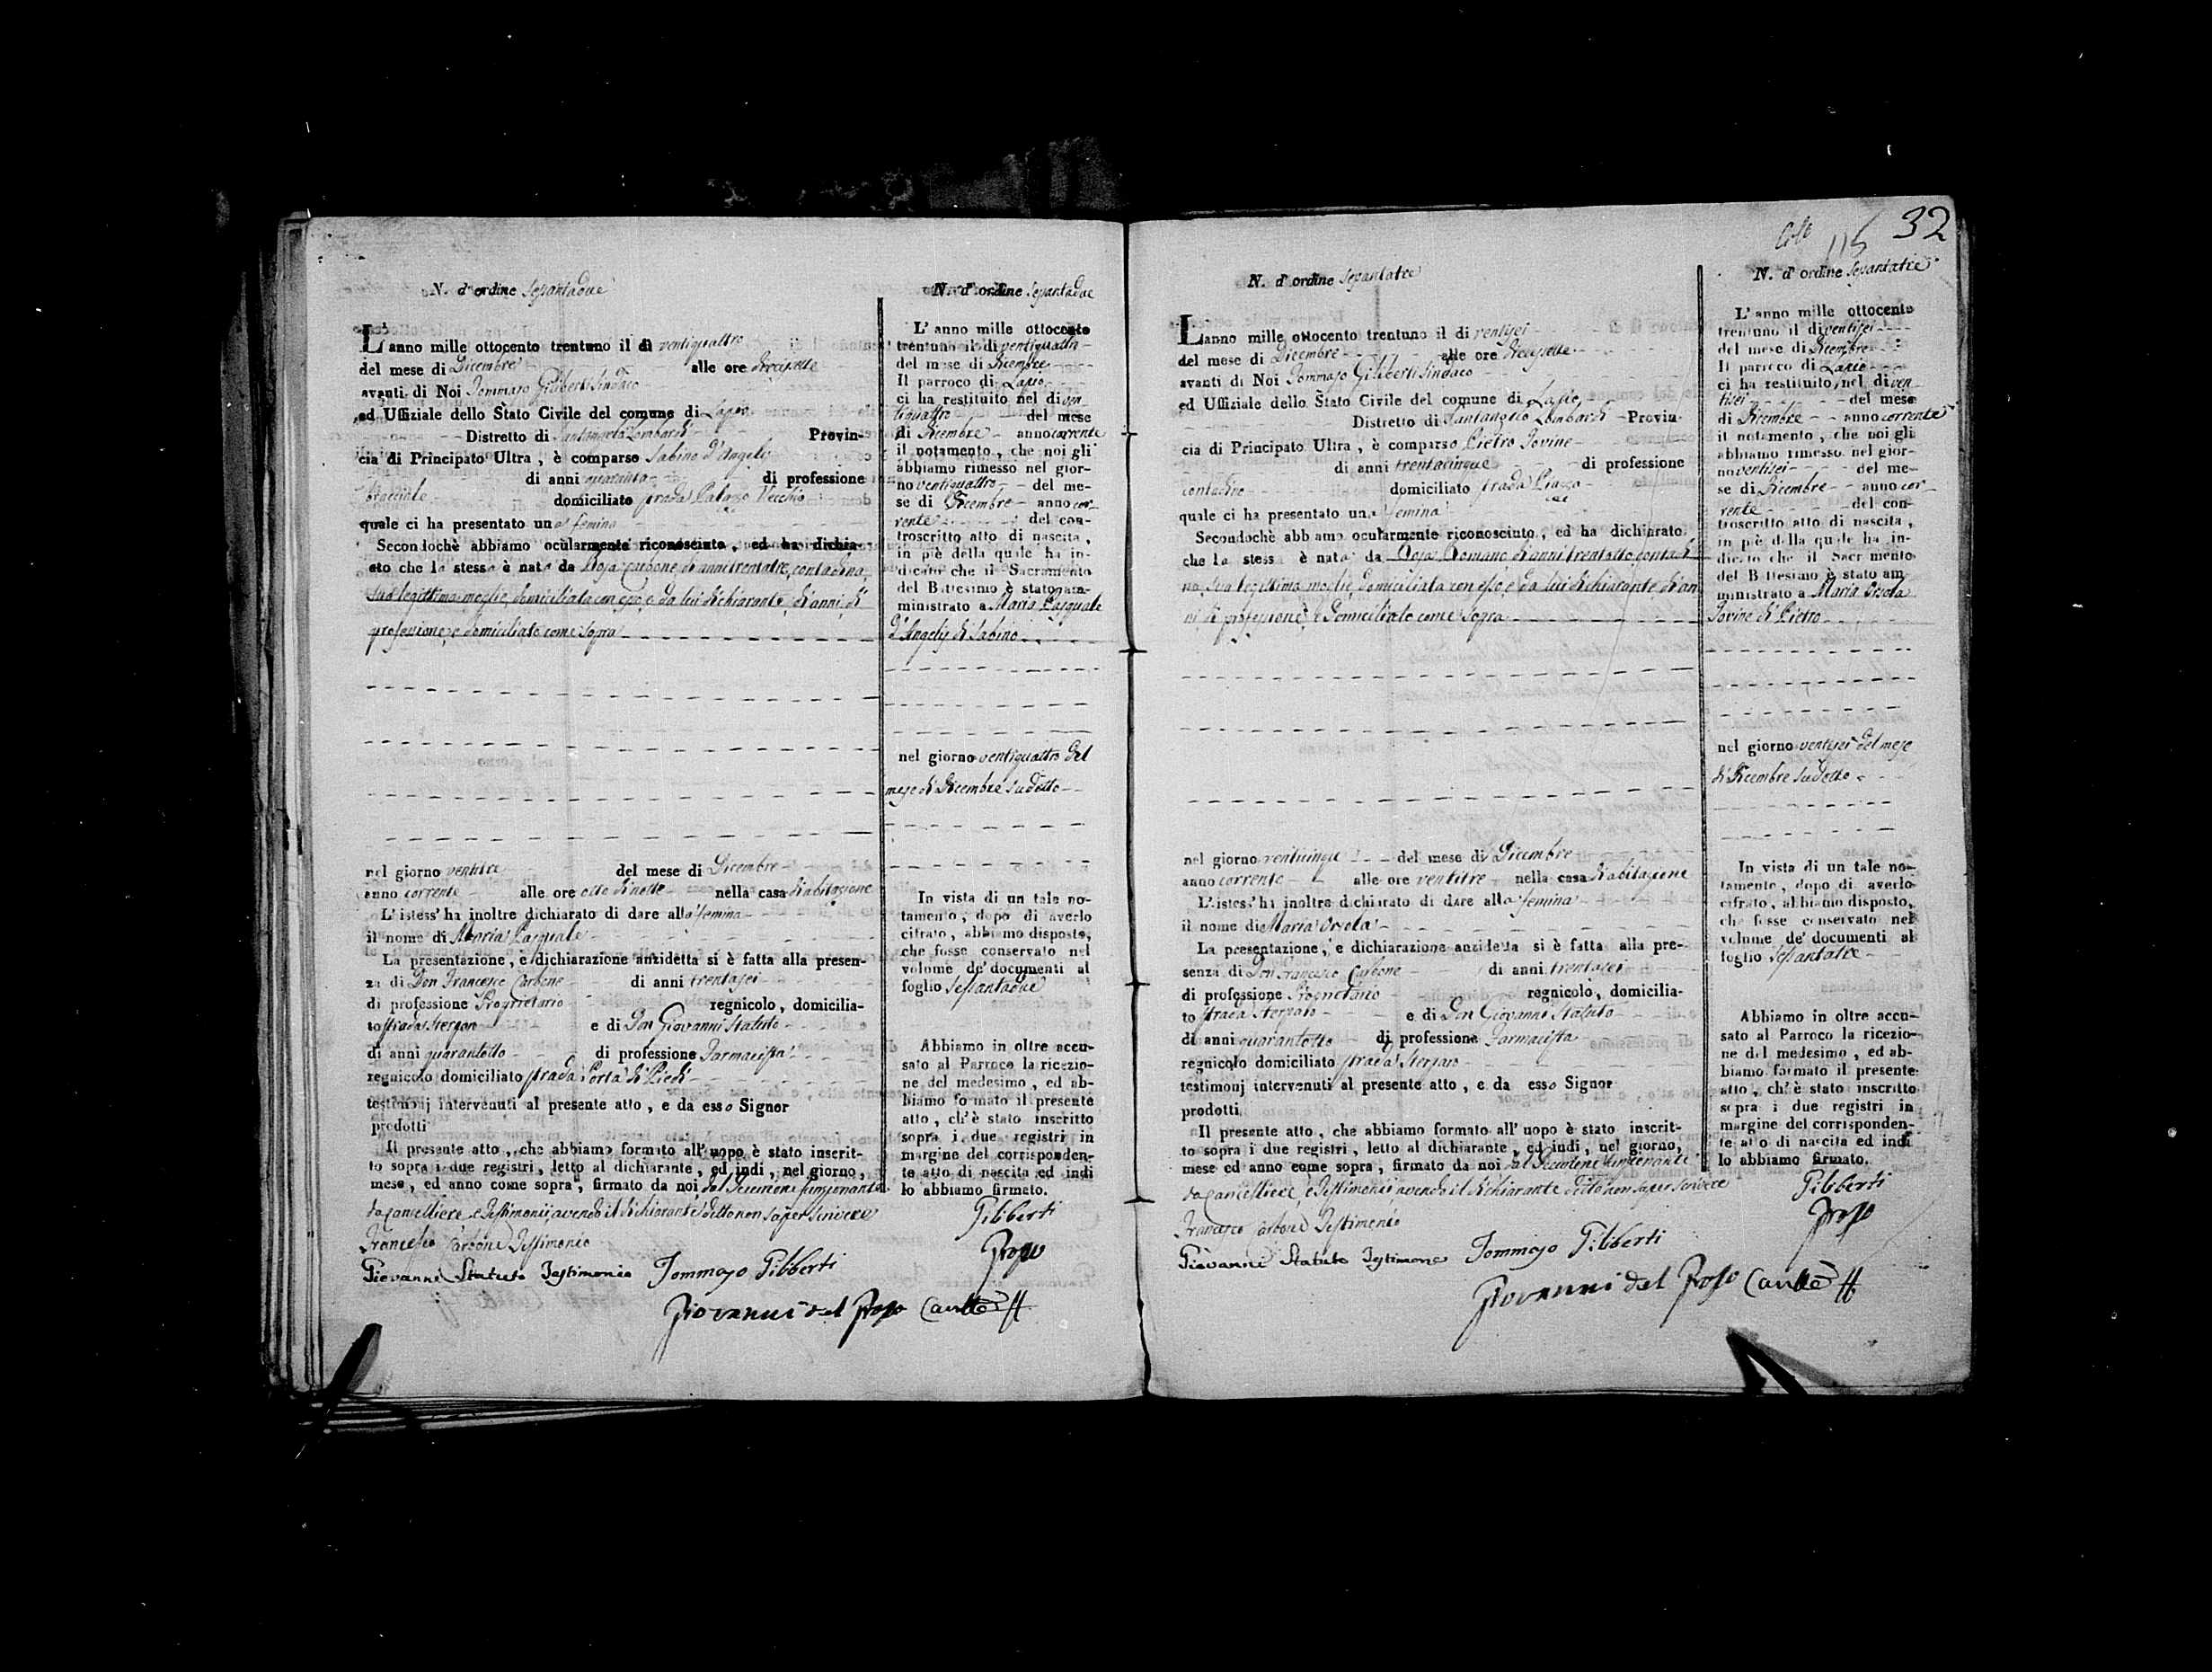 N. d' ordine Settantadue
L' anno mille ottocento trentuno il di ventiquattro
del mese di Dicembre alle ore diecisette
avanti di Noi Tommaso Giliberti Sindaco
ed Uffiziale dello Stato Civile del comune di Lapio
Distretto di Santangelo Lombardi Provin-
cia di Principato Ultra, è comparso Sabino d'Angeli
di anni quaranta di professione
bracciale domiciliato strada Palazzo Vecchio
quale ci ha presentato una femina
Secondochè abbiamo ocularmente riconosciuto, ed ha dichia-
ato che la stessa è nata da Rosa Carbone di anni trentatre, contadina,
sua legittima moglie, domiciliata con esso, e da lui dichiarante, di anni, di
professione, e domiciliato come sopra
nel giorno ventitre del mese di Dicembre
anno corrente alle ore otto di notte nella casa d'abitazione
L' istess' ha inoltre dichiarato di dare alla femina
il nome di Maria Pasquale
La presentazione, e dichiarazione anzidetta si è fatta alla presen-
za di Don Francesco Carbone di anni trentasei
di professione Proprietario regnicolo, domicilia-
to strada e di Don Giovanni Statuto
di anni quarantotto di professione Farmacista
regnicolo domiciliato strada Porta di Piedi
testimonj intervenuti al presente atto, e da esso Signor
prodotti
Il presente atto, che abbiamo formato all' uopo è stato inscrit-
to sopra i due registri, letto al dichiarante, ed indi, nel giorno,
mese, ed anno come sopra, firmato da noi, dal Decurione funzionante
da Cancelliere, e Testimonii avendo il dichiarante detto non saper scrivere
Francesco Carbone Testimonio
Giovanni Statuto Testimonio Tommaso Giliberti
Giovanni del Grosso
N. d' ordine Settantadue
L' anno mille ottocento
trentuno il di ventiquattro
del mese di Dicembre
Il parroco di Lapio
ci ha restituito nel di ven
tiquattro del mese
di Dicembre anno corrente
il notamento, che noi gli
abbiamo rimesso nel gior-
no ventiquattro del me-
se di Dicembre anno cor-
rente del con-
troscritto atto di nascita,
in piè della quale ha in-
dicato che il Sacramento
del Battesimo è stato am-
ministrato a Maria Pasquale
d'Angelis di Sabino
nel giorno ventiquattro del
mese di Dicembre sudetto
In vista di un tale no-
tamento, dopo di averlo
cifrato, abbiamo disposto,
che fosse conservato nel
volume de' documenti al
foglio Settantadue
Abbiamo in oltre accu-
sato al Parroco la ricezio-
ne del medesimo, ed ab-
biamo formato il presente
atto, ch' è stato inscritto
sopra i due registri in
margine del corrisponden-
te atto di nascita ed indi
lo abbiamo firmato.
Giliberti
Grosso
32
115
N. d' ordine Settantatre
L'anno mille ottocento trentuno il di ventisei
del mese di Dicembre alle ore diecisette
avanti di Noi Tommaso Giliberti Sindaco
ed Uffiziale dello Stato Civile del comune di Lapio
Distretto di Santangelo Lombardi Provin-
cia di Principato Ultra, è comparso Pietro Iovine
di anni trentacinque di professione
contadino domiciliato strada Piazza
quale ci ha presentato una femina
Secondochè abbiamo ocularmente riconosciuto, ed ha dichiarato
che la stess è nata da Rosa Romano di anni trentotto, contadi
na, sua legittima moglie, domiciliata con esso, e da lui dichiarante di an
ni di professione, e domiciliato come sopra
nel giorno venticinque del mese di Dicembre
anno corrente alle ore ventitre nella casa d'abitazione
L' istess' ha inoltre dichiarato di dare alla femina
il nome di Maria Orsola
La presentazione, e dichiarazione anzidetta si è fatta alla pre-
senza di Don Francesco Carbone di anni trentasei
di professione Proprietario regnicolo, domicilia-
to strada e di Don Giovanni Statuto
di anni quarantotto di professione Farmacista
regnicolo domiciliato strada
testimonj intervenuti al presente atto, e da esso Signor
prodotti
Il presente atto, che abbiamo formato all' uopo è stato inscrit-
to sopra i due registri, letto al dichiarante, ed indi, nel giorno,
mese ed anno come sopra, firmato da noi dal Decurione funzionante
da Cancelliere, e Testimonii avendo il dichiarante detto non saper scrivere
Francesco Carbone Testimonio
Giovanni Statuto Testimonio Tommaso Giliberti
Giovanni del Grosso
N. d' ordine Settantatre
L' anno mille ottocento
trentuno il di ventisei
del mese di Dicembre
Il parroco di Lapio
ci ha restituito nel di ven
tisei del mese
di Dicembre anno corrente
il notamento, che noi gli
abbiamo rimesso nel gior-
no ventisei del me-
se di Dicembre anno cor-
rente del con-
troscritto atto di nascita,
in piè della quale ha in-
dicato che il Sacramento
del Battesimo è stato am
ministrato a Maria Orsola
Iovine di Pietro
nel giorno ventisei del mese
di Dicembre sudetto
In vista di un tale no-
tamento, dopo di averlo
cifrato, abbiamo disposto,
che fosse conservato nel
volume de' documenti al
foglio Settantatre
Abbiamo in oltre accu-
sato al Parroco la ricezio-
ne del medesimo, ed ab-
biamo formato il presente
atto, ch' è stato inscritto
sopra i due registri in
margine del corrisponden-
te atto di nascita ed indi
lo abbiamo firmato.
Giliberti
Grosso